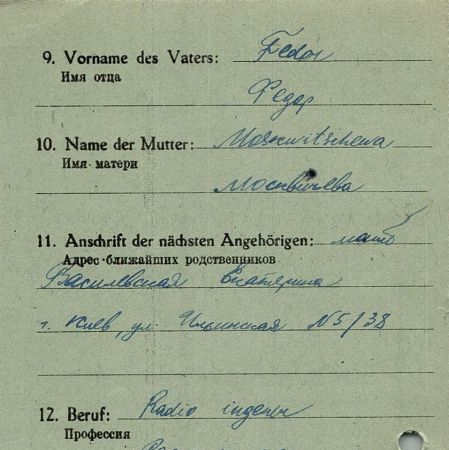 9. Vorname des Vaters: Fedor
Имя отца
Федор
10. Name der Mutter: Moskwitschewa
Имя матери
Москвичева
11. Anschrift der nächsten Angehörigen: мать
Адрес ближайших родственников
Василевская Екатерина
г. Киев, ул. Ильинская N 5/38
12. Beruf: Radio ingenir
Профессия